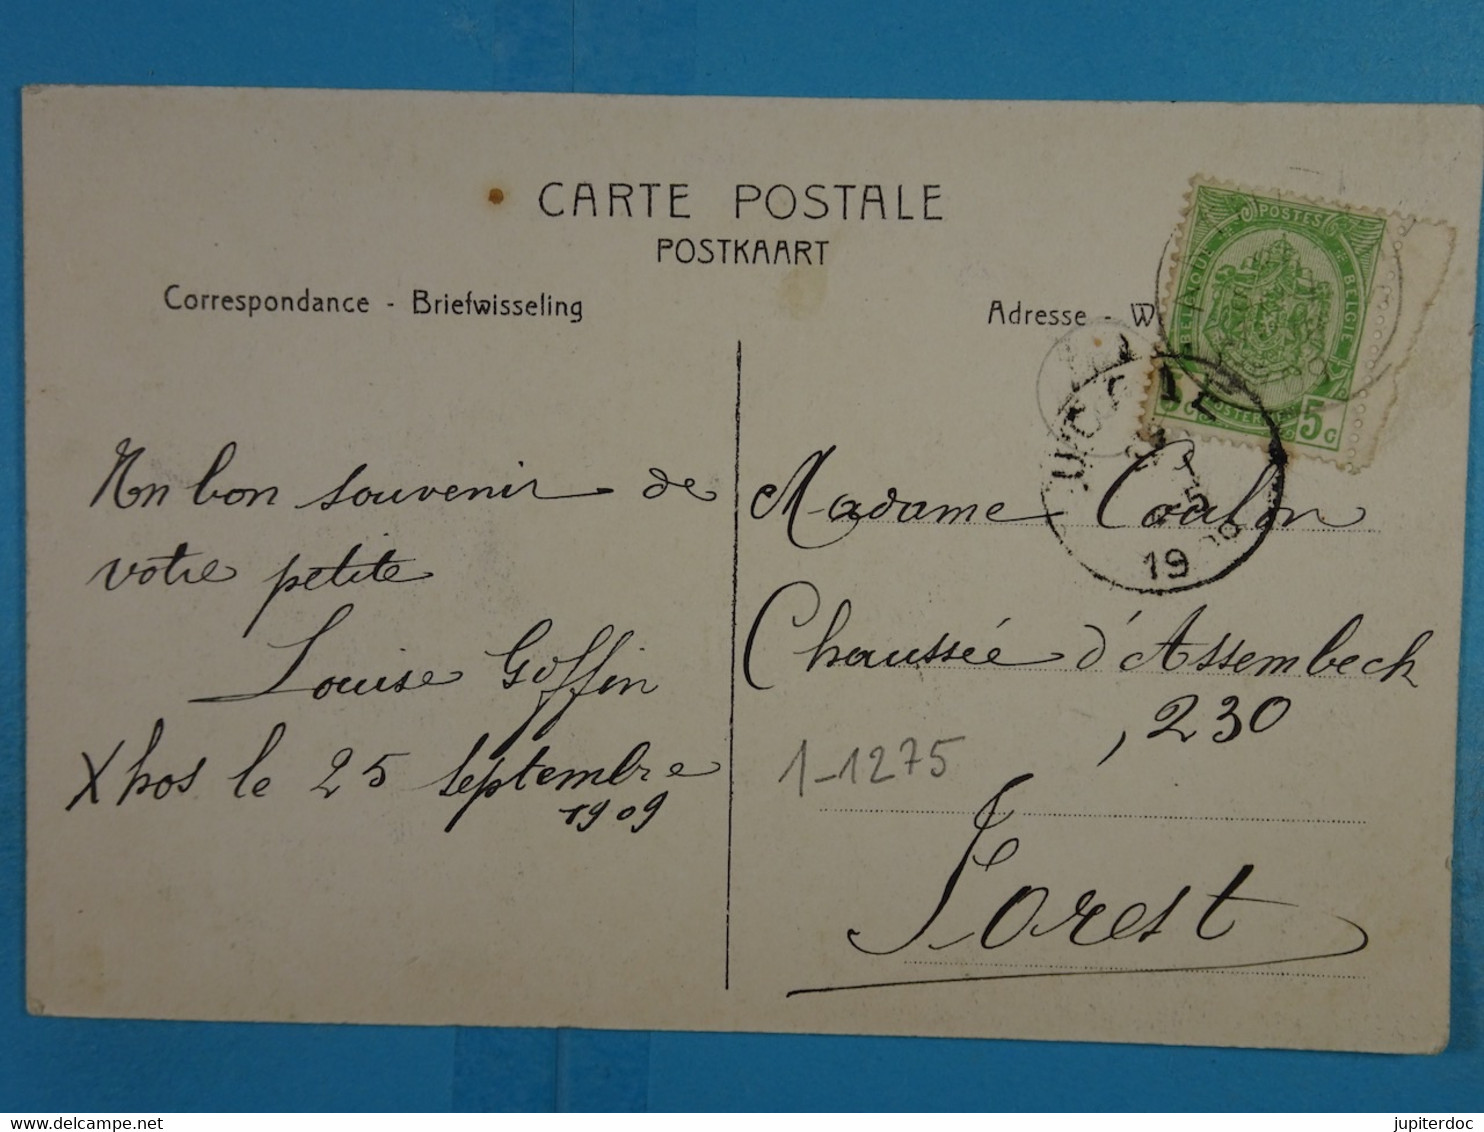 CARTE POSTALE
POSTKAART
Correspondance - Briefwisseling
Adresse - W
POSTES
BELGIQUE
BELGIË
5 C
5 C
UCCLE
5
19
Un bon souvenir de
votre petite
Louise Goffin
Xhos le 25 septembre
1909
Madame Coulon
Chaussée d'Alsembech
, 230
1-1275
Forest
jupiterdoc